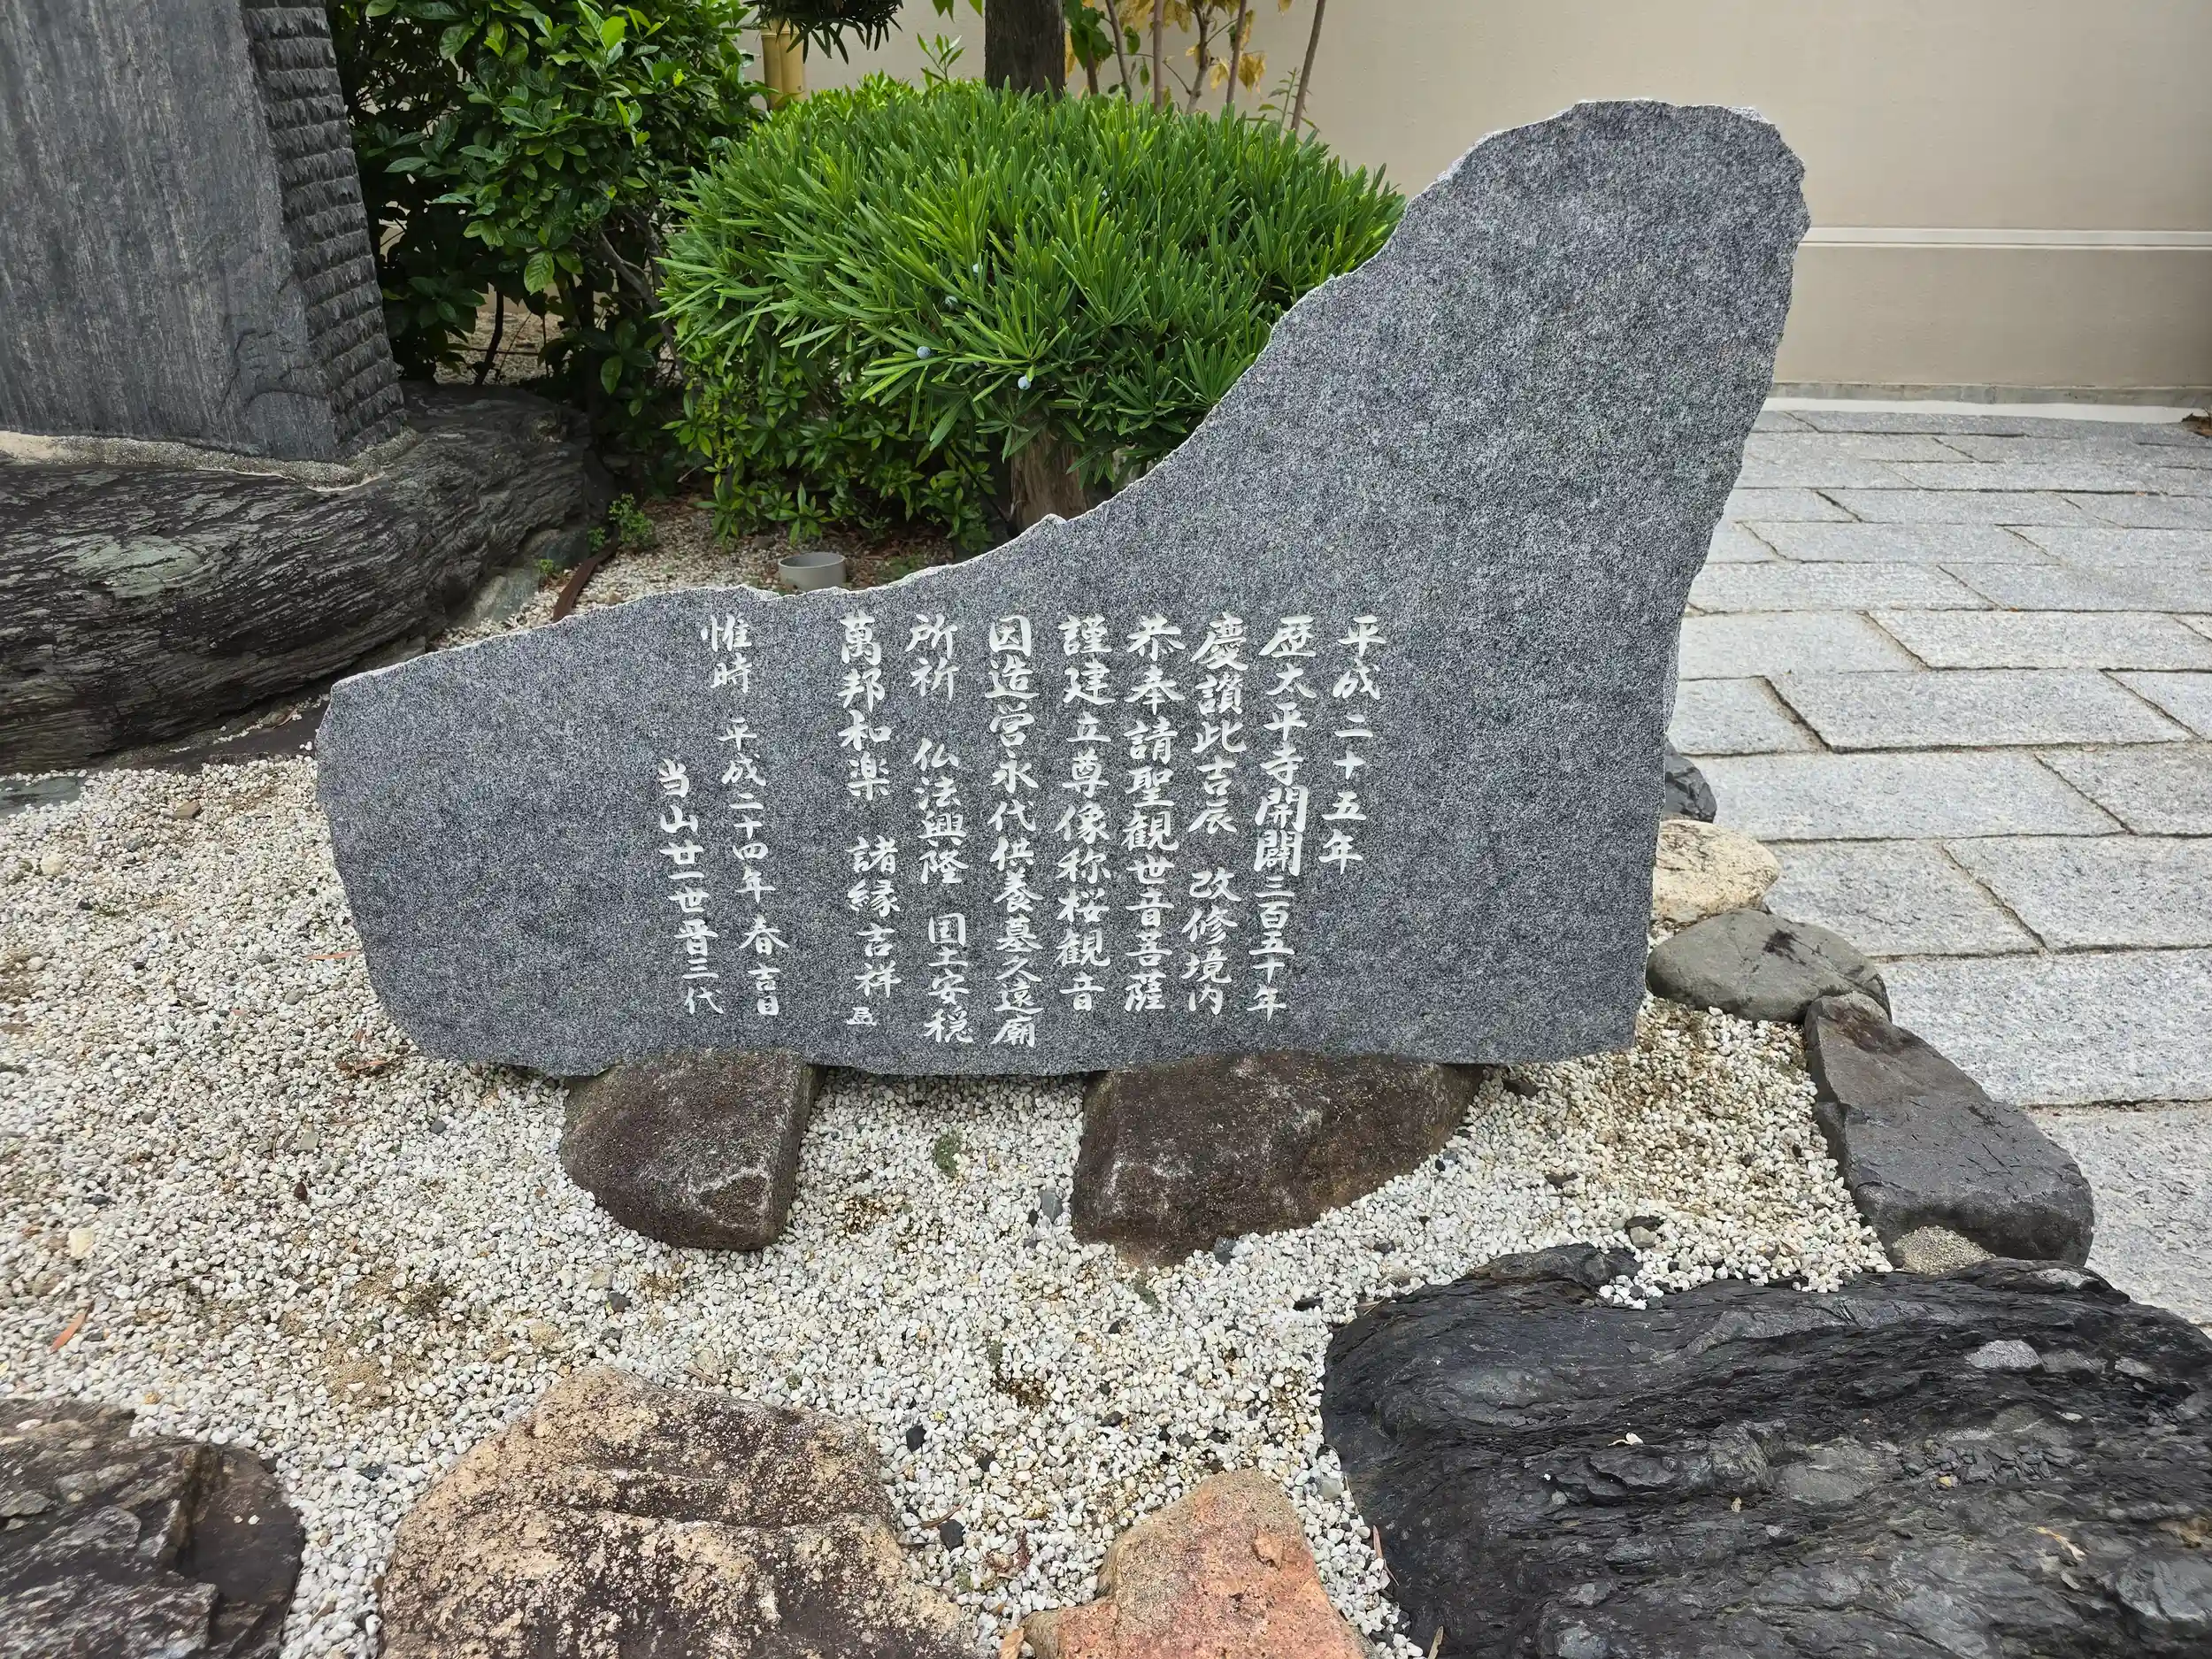 平成二十五年
歴太平寺開闢三百五十年
慶讃此吉辰 改修境内
恭奉請聖観世音菩薩
謹建立尊像称桜観音
因造営永代供養墓久遠廟
所祈 仏法興隆 国土安穏
萬邦和楽 諸縁吉祥
惟時 平成二十四年春吉日
当山廿一世晋三代